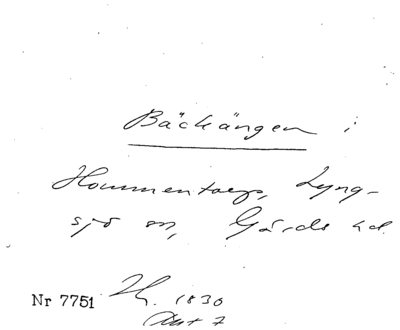 Bäckängen i
Hommentorp, Lyng-
sjö sn, Gärds hd.
Nr 7751 Lh. 1830
Akt 7